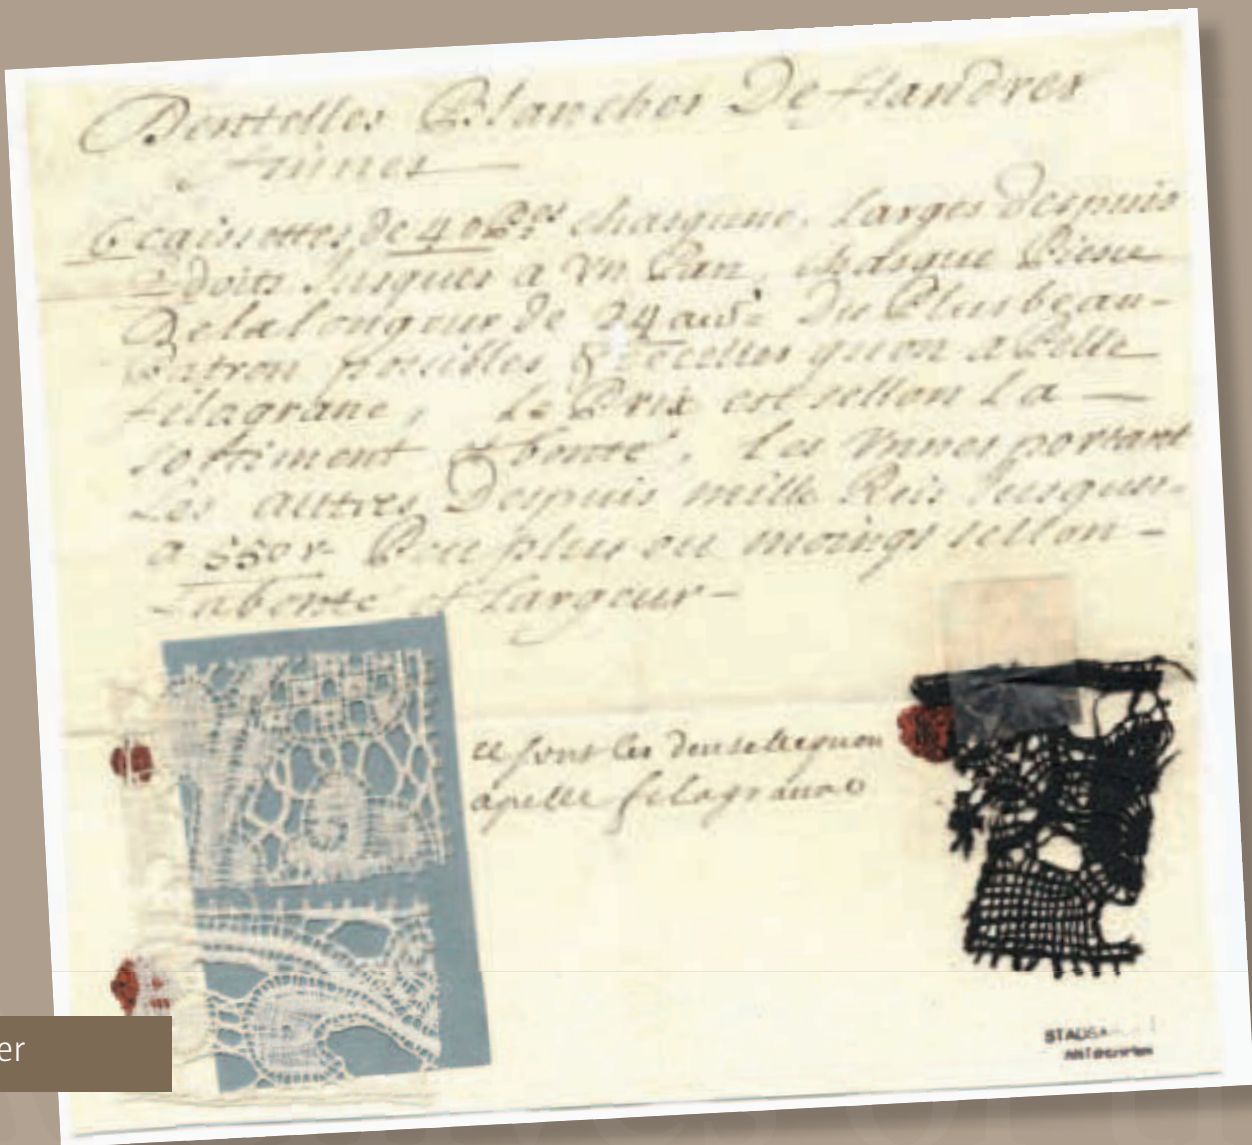 Dentelles Blanches De flandres
finnes
6 caissettes de 40 P.es chasqune, larges despuis
2 doits Jusques a vn Pan, chasque Piece
De la longeur de 24 au.s Du Plus beau
Patron possibles quon apelle
filagrane, Le Prix est sellon La
sortiment et bonte, les vnnes portant
Les auttres Despuis mille Reis Jusques
a 550 r Peu plus ou moings sellon
La bonte et largeur
ce sont les dentelles quon
apelle filagrane
er